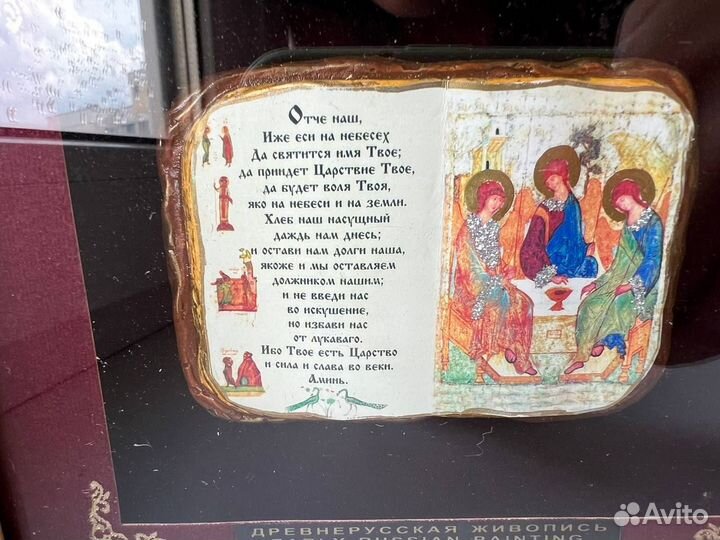 Отче наш,
Иже еси на небесех
Да святится имя Твое;
да приидет Царствие Твое,
да будет воля Твоя,
яко на небеси и на земли.
Хлеб наш насущный
даждь нам днесь;
и остави нам долги наша,
якоже и мы оставляем
должником нашим;
и не введи нас
во искушение,
но избави нас
от лукаваго.
Ибо Твое есть Царство
и сила и слава во веки.
Аминь.
ДРЕВНЕРУССКАЯ ЖИВОПИСЬ
EARLY RUSSIAN PAINTING
Avito